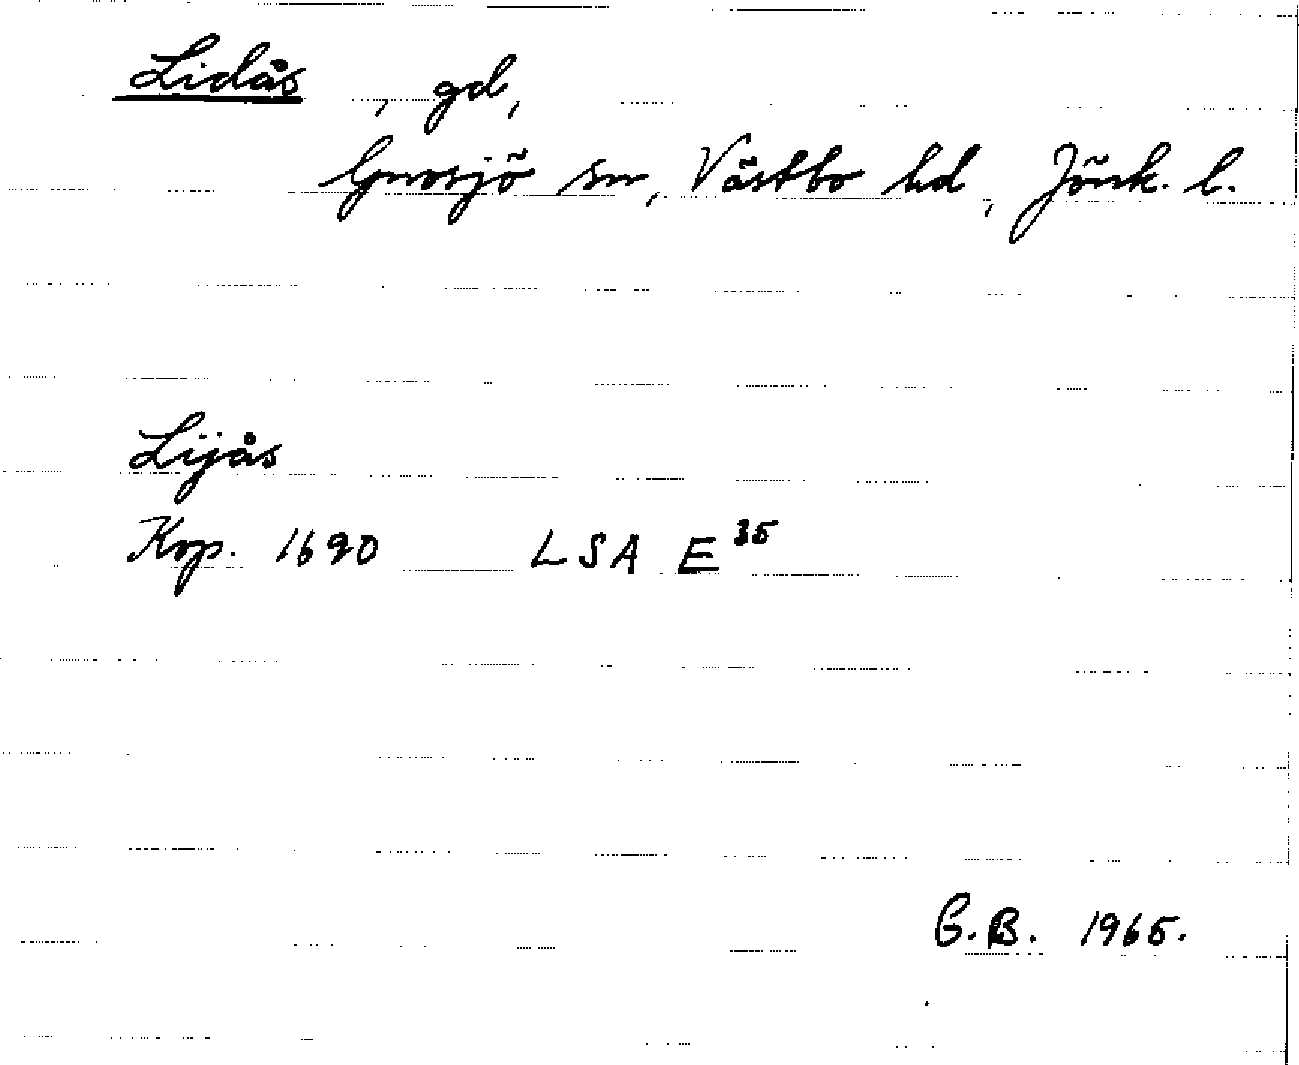 Lidås, gd,
Gnosjö sn, Västbo hd, Jönk. l.
Lijås
Kop. 1690 LSA E 35
G.B. 1965.